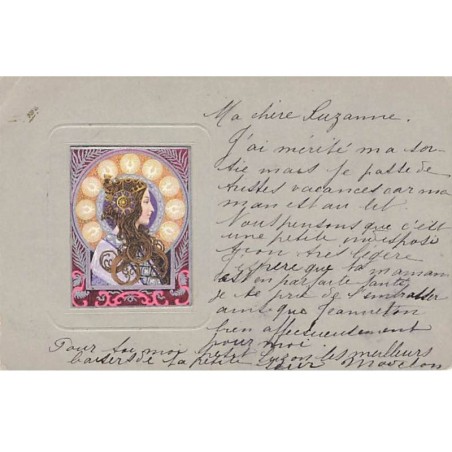 Ma chère Suzanne.
J'ai mérité ma sor-
tie mais je passe de
tristes vacances car ma
man est au lit.
Nous pensons que c'est
une petite indisposi
tion très légère
J'espère que ta maman
est en parfaite santé
je te prie de l'embrasser
ainsi que Jeanneton
bien affectueusement
pour moi
Pour toi mon petit Suzon les meilleurs
baisers de ta petite